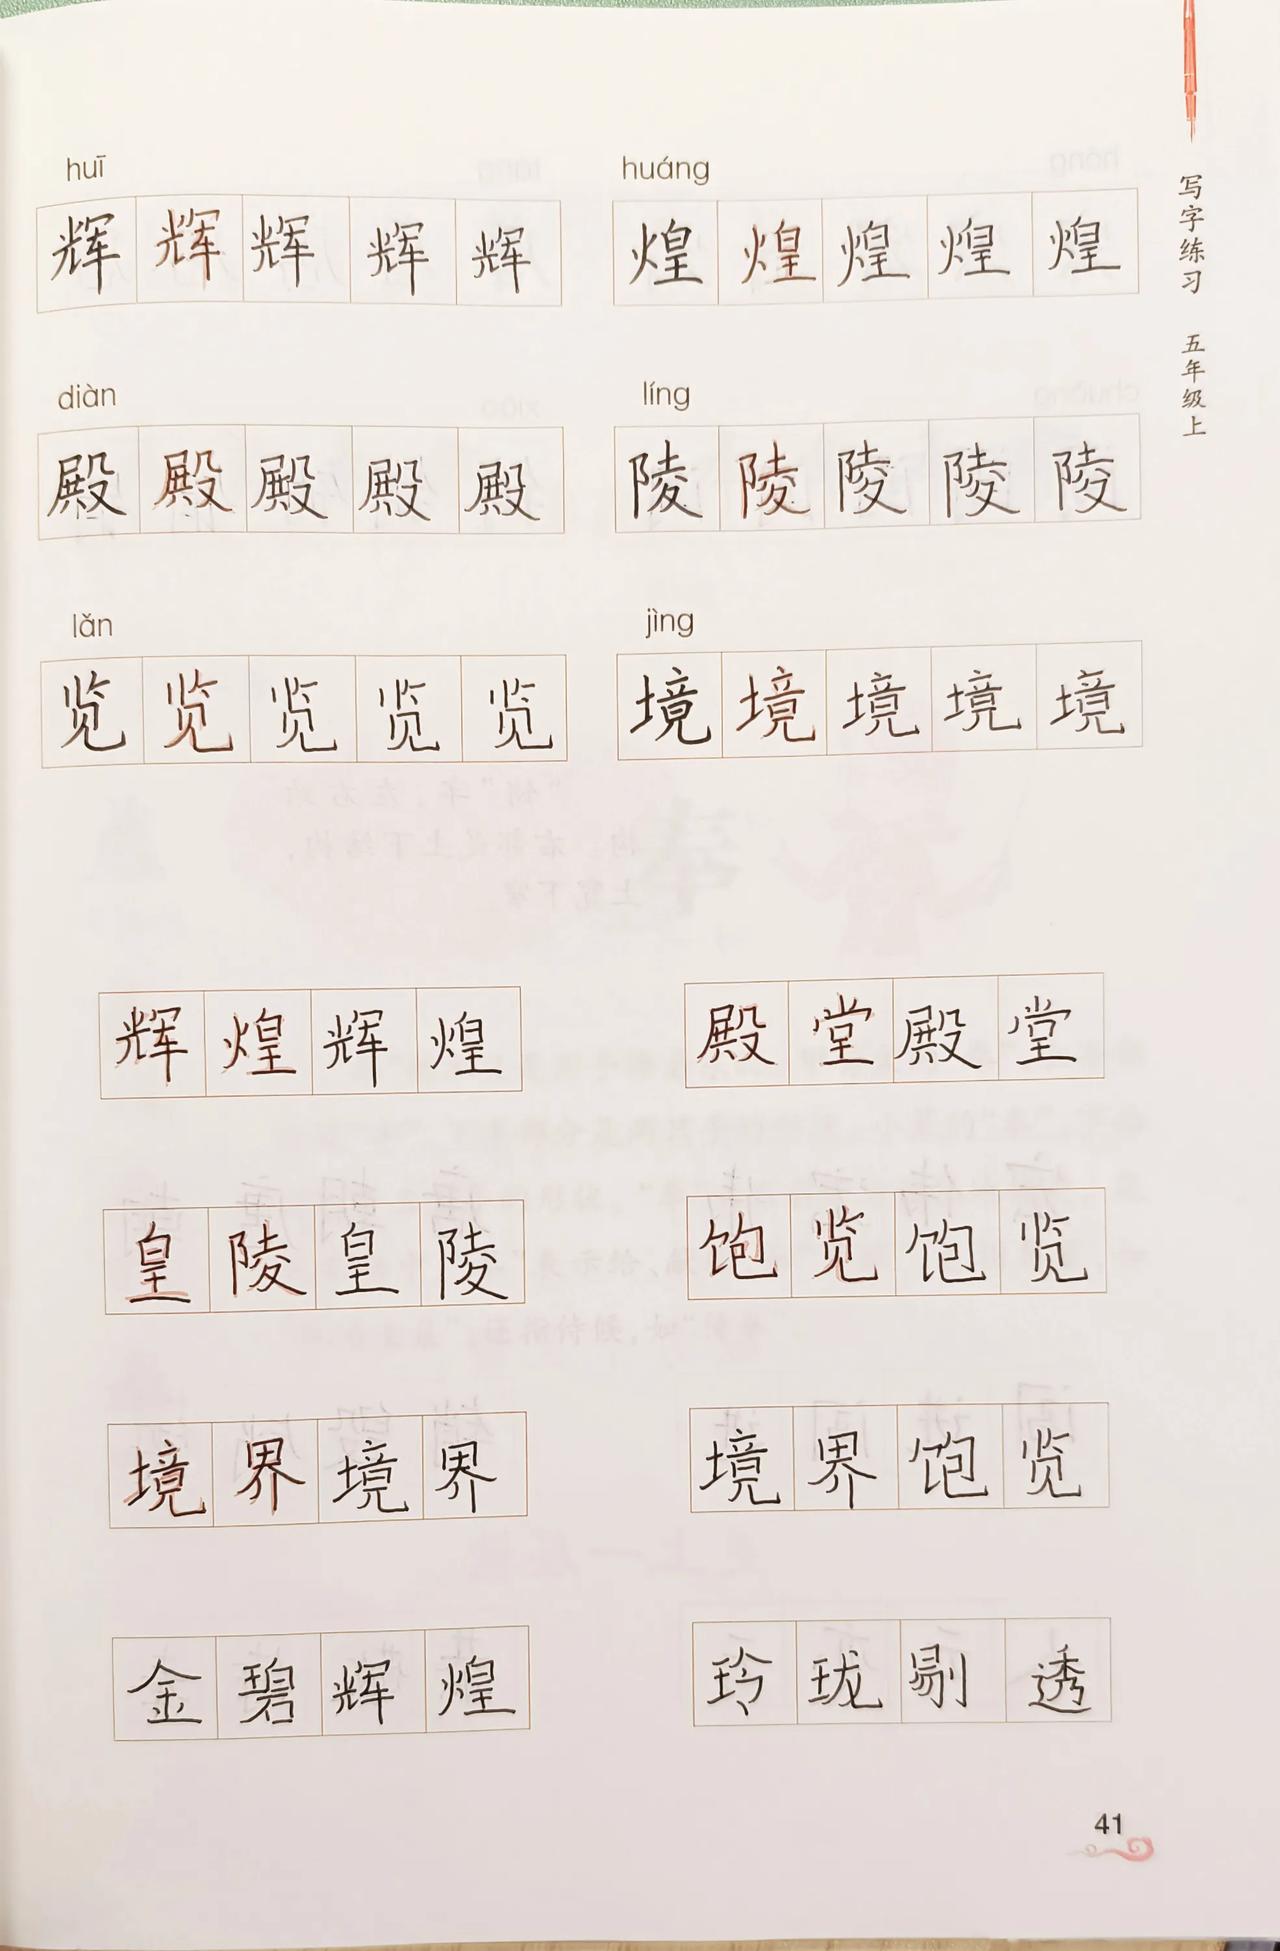 huī huáng
辉辉辉辉辉 煌煌煌煌煌
diàn líng
殿殿殿殿殿 陵陵陵陵陵
lǎn jìng
览览览览览 境境境境境
辉煌辉煌 殿堂殿堂
皇陵皇陵 饱览饱览
境界境界 境界饱览
金碧辉煌 玲珑剔透
写字练习 五年级上
41